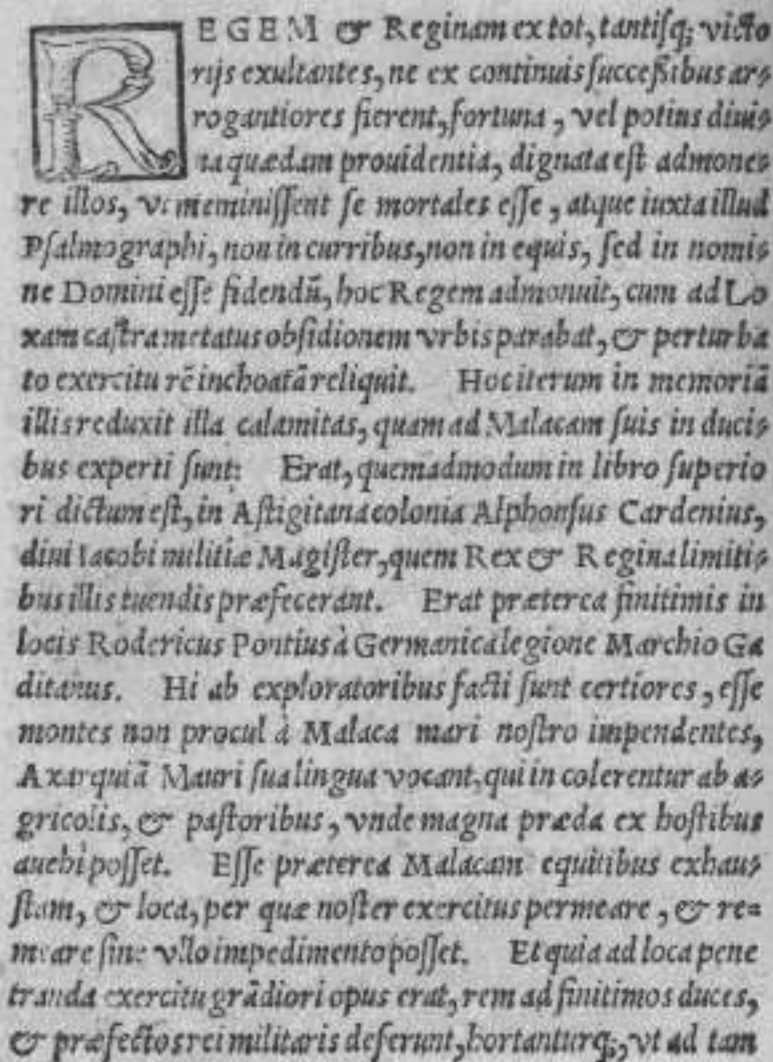 REGEM & Reginam ex tot, tantisq; victo
rijs exultantes, ne ex continuis successibus ar-
rogantiores fierent, fortuna, vel potius diui-
na quædam prouidentia, dignata est admone-
re illos, vt meminissent se mortales esse, atque iuxta illud
Psalmographi, non in curribus, non in equis, sed in nomi-
ne Domini esse fidendū, hoc Regem admonuit, cum ad Lo
xam castra metatus obsidionem vrbis parabat, & perturba
to exercitu rē inchoatā reliquit. Hoc iterum in memoriā
illis reduxit illa calamitas, quam ad Malacam suis in duci-
bus experti sunt: Erat, quemadmodum in libro superio
ri dictum est, in Astigitana colonia Alphonsus Cardenius,
diui Iacobi militiæ Magister, quem Rex & Regina limiti-
bus illis tuendis præfecerant. Erat præterea finitimis in
locis Rodericus Pontius à Germanica legione Marchio Ga
ditanus. Hi ab exploratoribus facti sunt certiores, esse
montes non procul à Malaca mari nostro impendentes,
Axarquiā Mauri sua lingua vocant, qui in colerentur ab a-
gricolis, & pastoribus, vnde magna præda ex hostibus
auehi posset. Esse præterea Malacam equitibus exhau-
stam, & loca, per quæ noster exercitus permeare, & re=
meare sine vllo impedimento posset. Et quia ad loca pene
tranda exercitu grādiori opus erat, rem ad finitimos duces,
& præfectos rei militaris deferunt, hortanturq;, vt ad tam